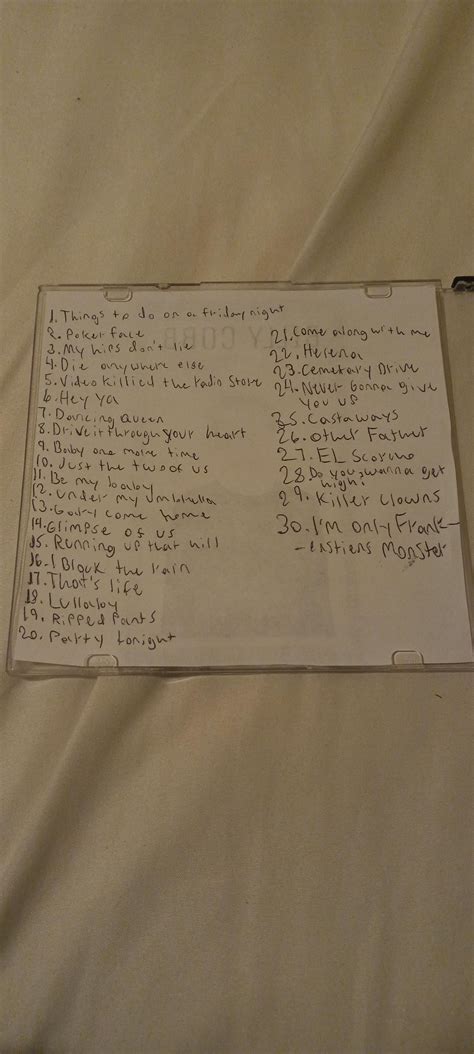 1. Things to do on a friday night
2. Poker face
3. My hips don't lie
4. Die anywhere else
5. Video killied the radio store
6. Hey Ya
7. Dancing Queen
8. Drive it through your heart
9. Baby one more time
10. Just the two of us
11. Be my baby
12. Under my umbrella
13. Gory come home
14. Glimpse of us
15. Running up that hill
16. I Block the rain
17. That's life
18. Lullaby
19. Ripped Pants
20. Party tonight
21. Come along with me
22. Helena
23. Cemetary Drive
24. Never Gonna give
you up
25. Castaways
26. Other Father
27. EL Scorcho
28. Do you wanna get
high?
29. Killer Clowns
30. I'm only Frank-
- enstiens Monster